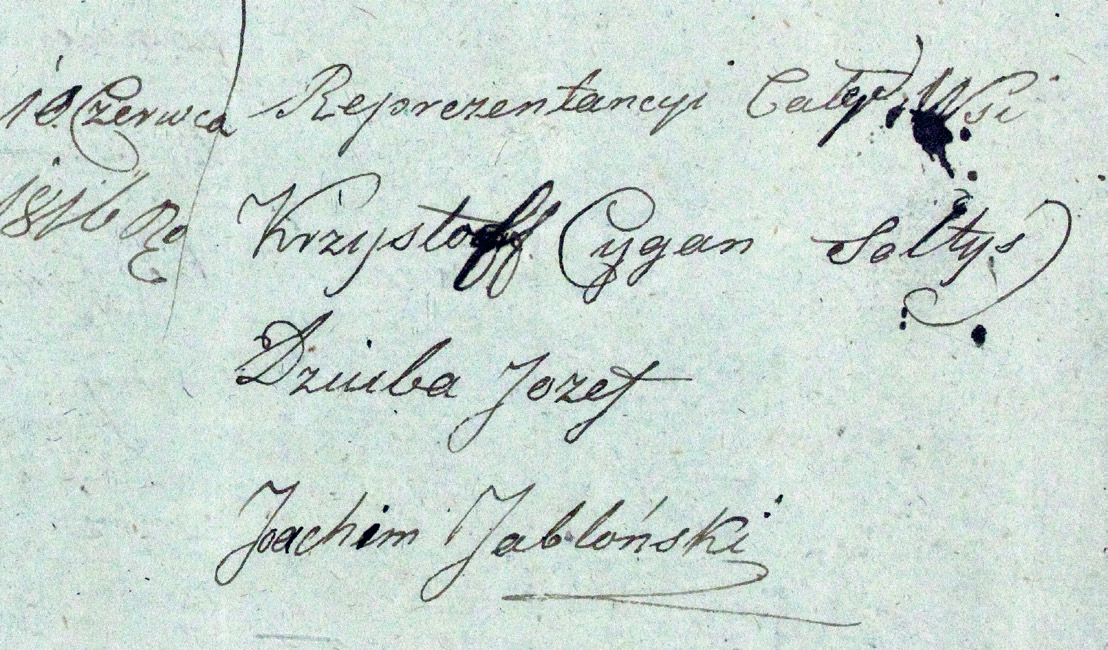 10 Czerwca Reprezentancyi Całej Wsi
1816 Ro
Krzystoff Cygan Sołtys
Dziuba Jozef
Joachim Jabloński